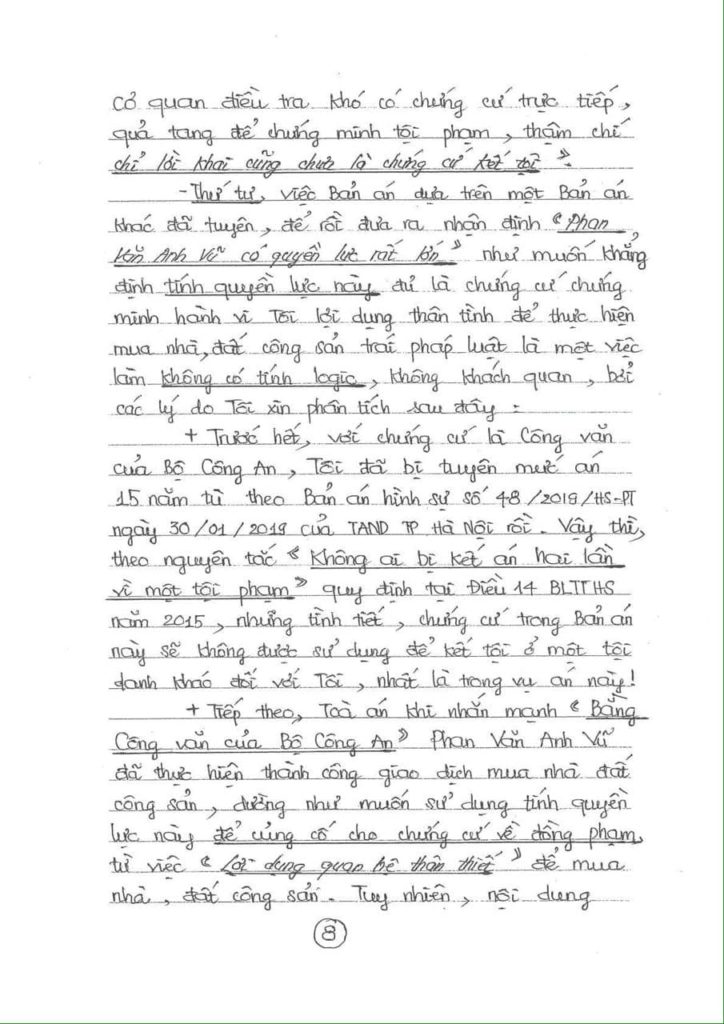 cơ quan điều tra khó có chứng cứ trực tiếp,
quả tang để chứng minh tội phạm, thậm chí
chỉ lời khai cũng chưa là chứng cứ kết tội".
- Thứ tư, việc Bản án dựa trên một Bản án
khác đã tuyên, để rồi đưa ra nhận định "Phan
Văn Anh Vũ có quyền lực rất lớn" như muốn khẳng
định tính quyền lực này đủ là chứng cứ chứng
minh hành vi Tôi lợi dụng thân tình để thực hiện
mua nhà, đất công sản trái pháp luật là một việc
làm không có tính logic, không khách quan, bởi
các lý do Tôi xin phân tích sau đây:
+ Trước hết, với chứng cứ là Công văn
của Bộ Công An, Tôi đã bị tuyên mức án
15 năm tù theo Bản án hình sự số 48/2019/HS-PT
ngày 30/01/2019 của TAND TP Hà Nội rồi. Vậy thì,
theo nguyên tắc "Không ai bị kết án hai lần
vì một tội phạm" quy định tại Điều 14 BLTTHS
năm 2015, những tình tiết, chứng cứ trong Bản án
này sẽ không được sử dụng để kết tội ở một tội
danh khác đối với Tôi, nhất là trong vụ án này!
+ Tiếp theo, Toà án khi nhấn mạnh "Bằng
Công văn của Bộ Công An" Phan Văn Anh Vũ
đã thực hiện thành công giao dịch mua nhà đất
công sản, dường như muốn sử dụng tính quyền
lực này để củng cố cho chứng cứ về đồng phạm,
từ việc "Lợi dụng quan hệ thân thiết" để mua
nhà, đất công sản. Tuy nhiên, nội dung
8